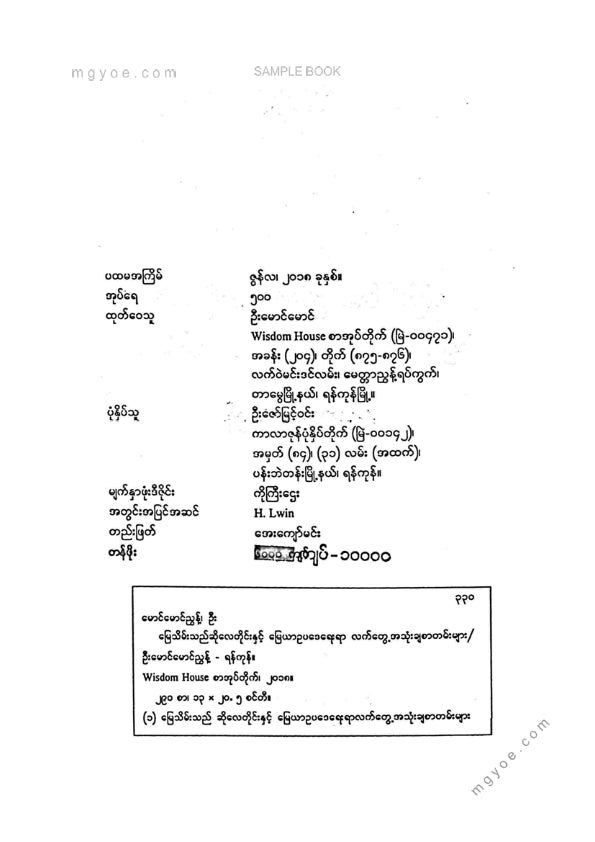 mgyoe.com SAMPLE BOOK
ပထမအကြိမ် ဇွန်လ၊ ၂၀၁၈ ခုနှစ်။
အုပ်ရေ ၅၀၀
ထုတ်ဝေသူ ဦးမောင်မောင်
Wisdom House စာအုပ်တိုက် (မြဲ-၀၀၄၇၁)၊
အခန်း (၂၀၄)၊ တိုက် (၈၇၅-၈၇၆)၊
လက်ဝဲမင်းဒင်လမ်း၊ မေတ္တာညွန့်ရပ်ကွက်၊
တာမွေမြို့နယ်၊ ရန်ကုန်မြို့။
ပုံနှိပ်သူ ဦးဇော်မြင့်ဝင်း
ကာလာဇုန်ပုံနှိပ်တိုက် (မြဲ-၀၀၁၄၂)၊
အမှတ် (၈၄)၊ (၃၁) လမ်း (အထက်)၊
ပန်းဘဲတန်းမြို့နယ်၊ ရန်ကုန်။
မျက်နှာဖုံးဒီဇိုင်း ကိုကြီးဌေး
အတွင်းအပြင်အဆင် H. Lwin
တည်းဖြတ် အေးကျော်မင်း
တန်ဖိုး ကျပ်-၁၀၀၀၀
၃၃၀
မောင်မောင်ညွန့်၊ ဦး
မြေသိမ်းသည်ဆိုလေတိုင်းနှင့် မြေယာဥပဒေရေးရာ လက်တွေ့အသုံးချစာတမ်းများ/
ဦးမောင်မောင်ညွန့် - ရန်ကုန်။
Wisdom House စာအုပ်တိုက်၊ ၂၀၁၈။
၂၉၀ စာ၊ ၁၃ × ၂၀.၅ စင်တီ။
(၁) မြေသိမ်းသည် ဆိုလေတိုင်းနှင့် မြေယာဥပဒေရေးရာလက်တွေ့အသုံးချစာတမ်းများ
mgyoe.com